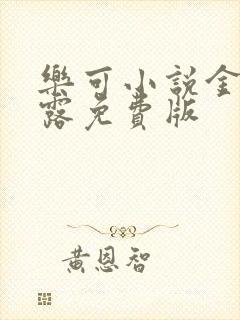 樂可小說金
露免費版
黃恩智